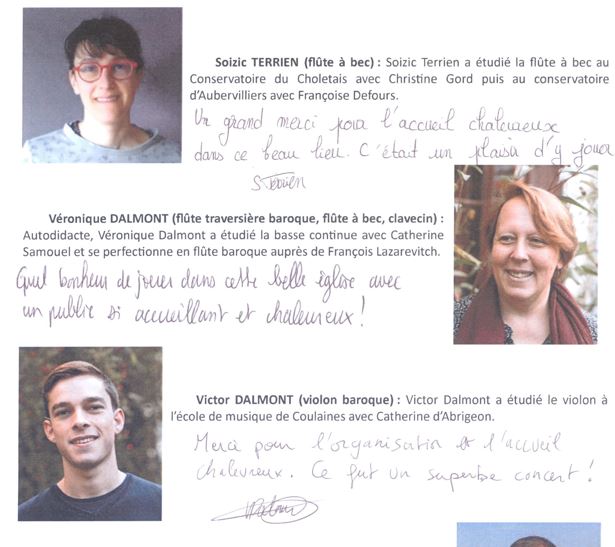 Soizic TERRIEN (flûte à bec) : Soizic Terrien a étudié la flûte à bec au
Conservatoire du Choletais avec Christine Gord puis au conservatoire
d'Aubervilliers avec Françoise Defours.
Un grand merci pour l'accueil chaleureux
dans ce beau lieu. C'était un plaisir d'y jouer
S Terrien
Véronique DALMONT (flûte traversière baroque, flûte à bec, clavecin) :
Autodidacte, Véronique Dalmont a étudié la basse continue avec Catherine
Samouel et se perfectionne en flûte baroque auprès de François Lazarevitch.
Quel bonheur de jouer dans cette belle église avec
un public si accueillant et chaleureux !
Victor DALMONT (violon baroque) : Victor Dalmont a étudié le violon à
l'école de musique de Coulaines avec Catherine d'Abrigeon.
Merci pour l'organisation et l'accueil
chaleureux. Ce fut un superbe concert !
Dalmont